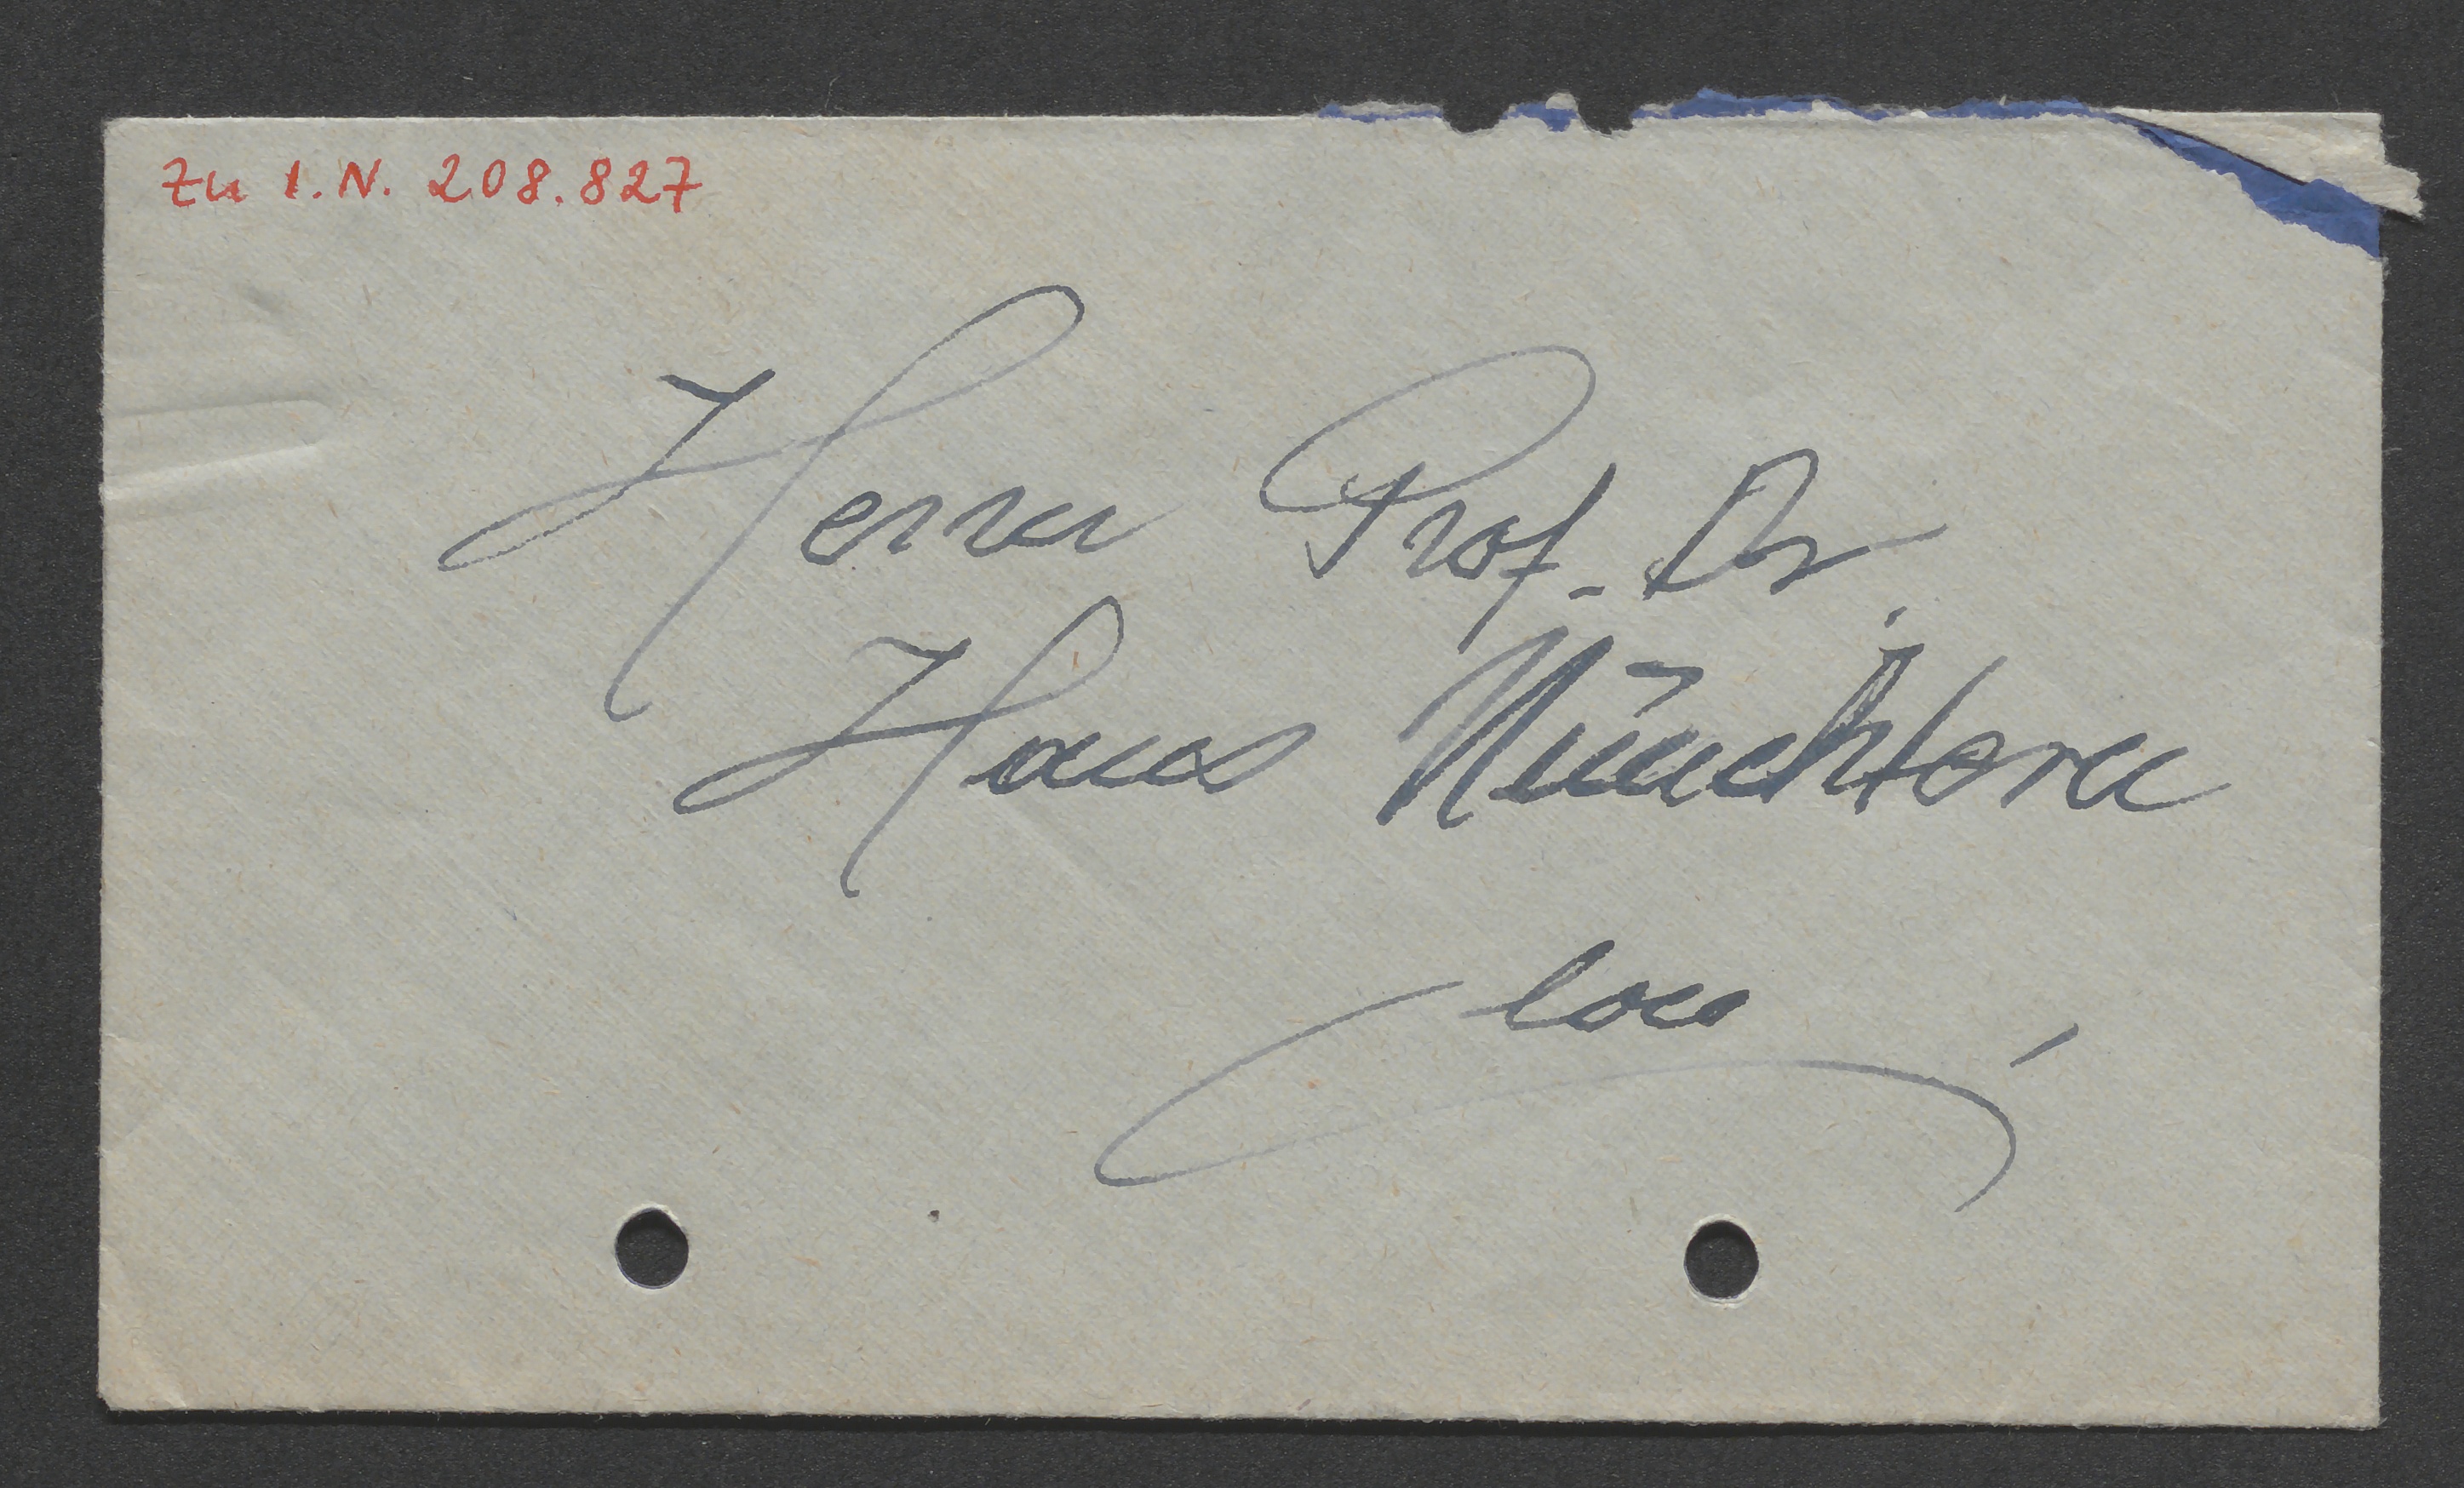 Zu I.N. 208.827
Herrn Prof. Dr.
Hans Nüchtern
loco